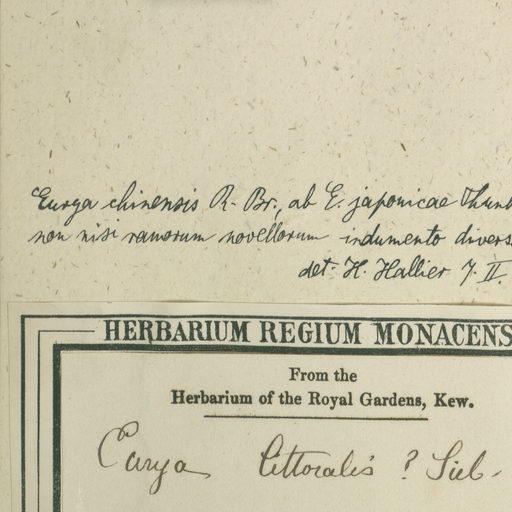 Eurya chinensis R. Br., ab E. japonicae Thunb
non nisi ramorum novellorum indumento divers
det. H. Hallier 7. II.
HERBARIUM REGIUM MONACENS
From the
Herbarium of the Royal Gardens, Kew.
Eurya littoralis ? Sieb.